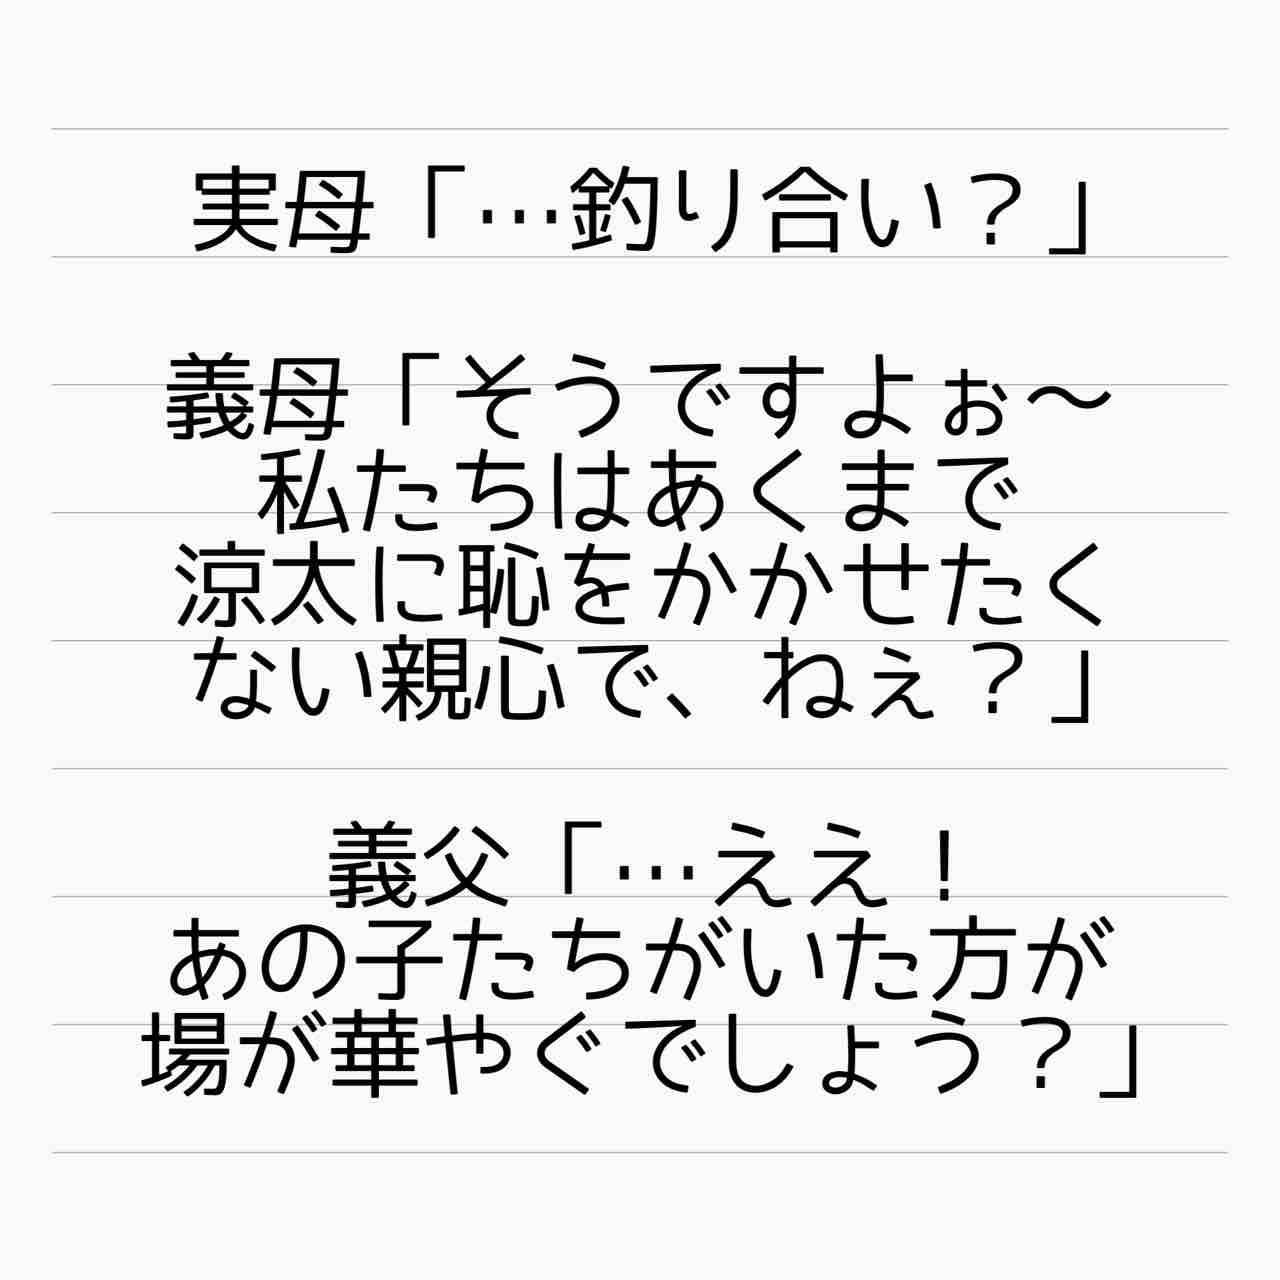 実母「…釣り合い？」
義母「そうですよぉ〜
私たちはあくまで
涼太に恥をかかせたく
ない親心で、ねぇ？」
義父「…ええ！
あの子たちがいた方が
場が華やぐでしょう？」